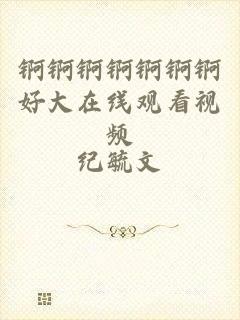 锕锕锕锕锕锕锕
好大在线观看视
频
纪毓文